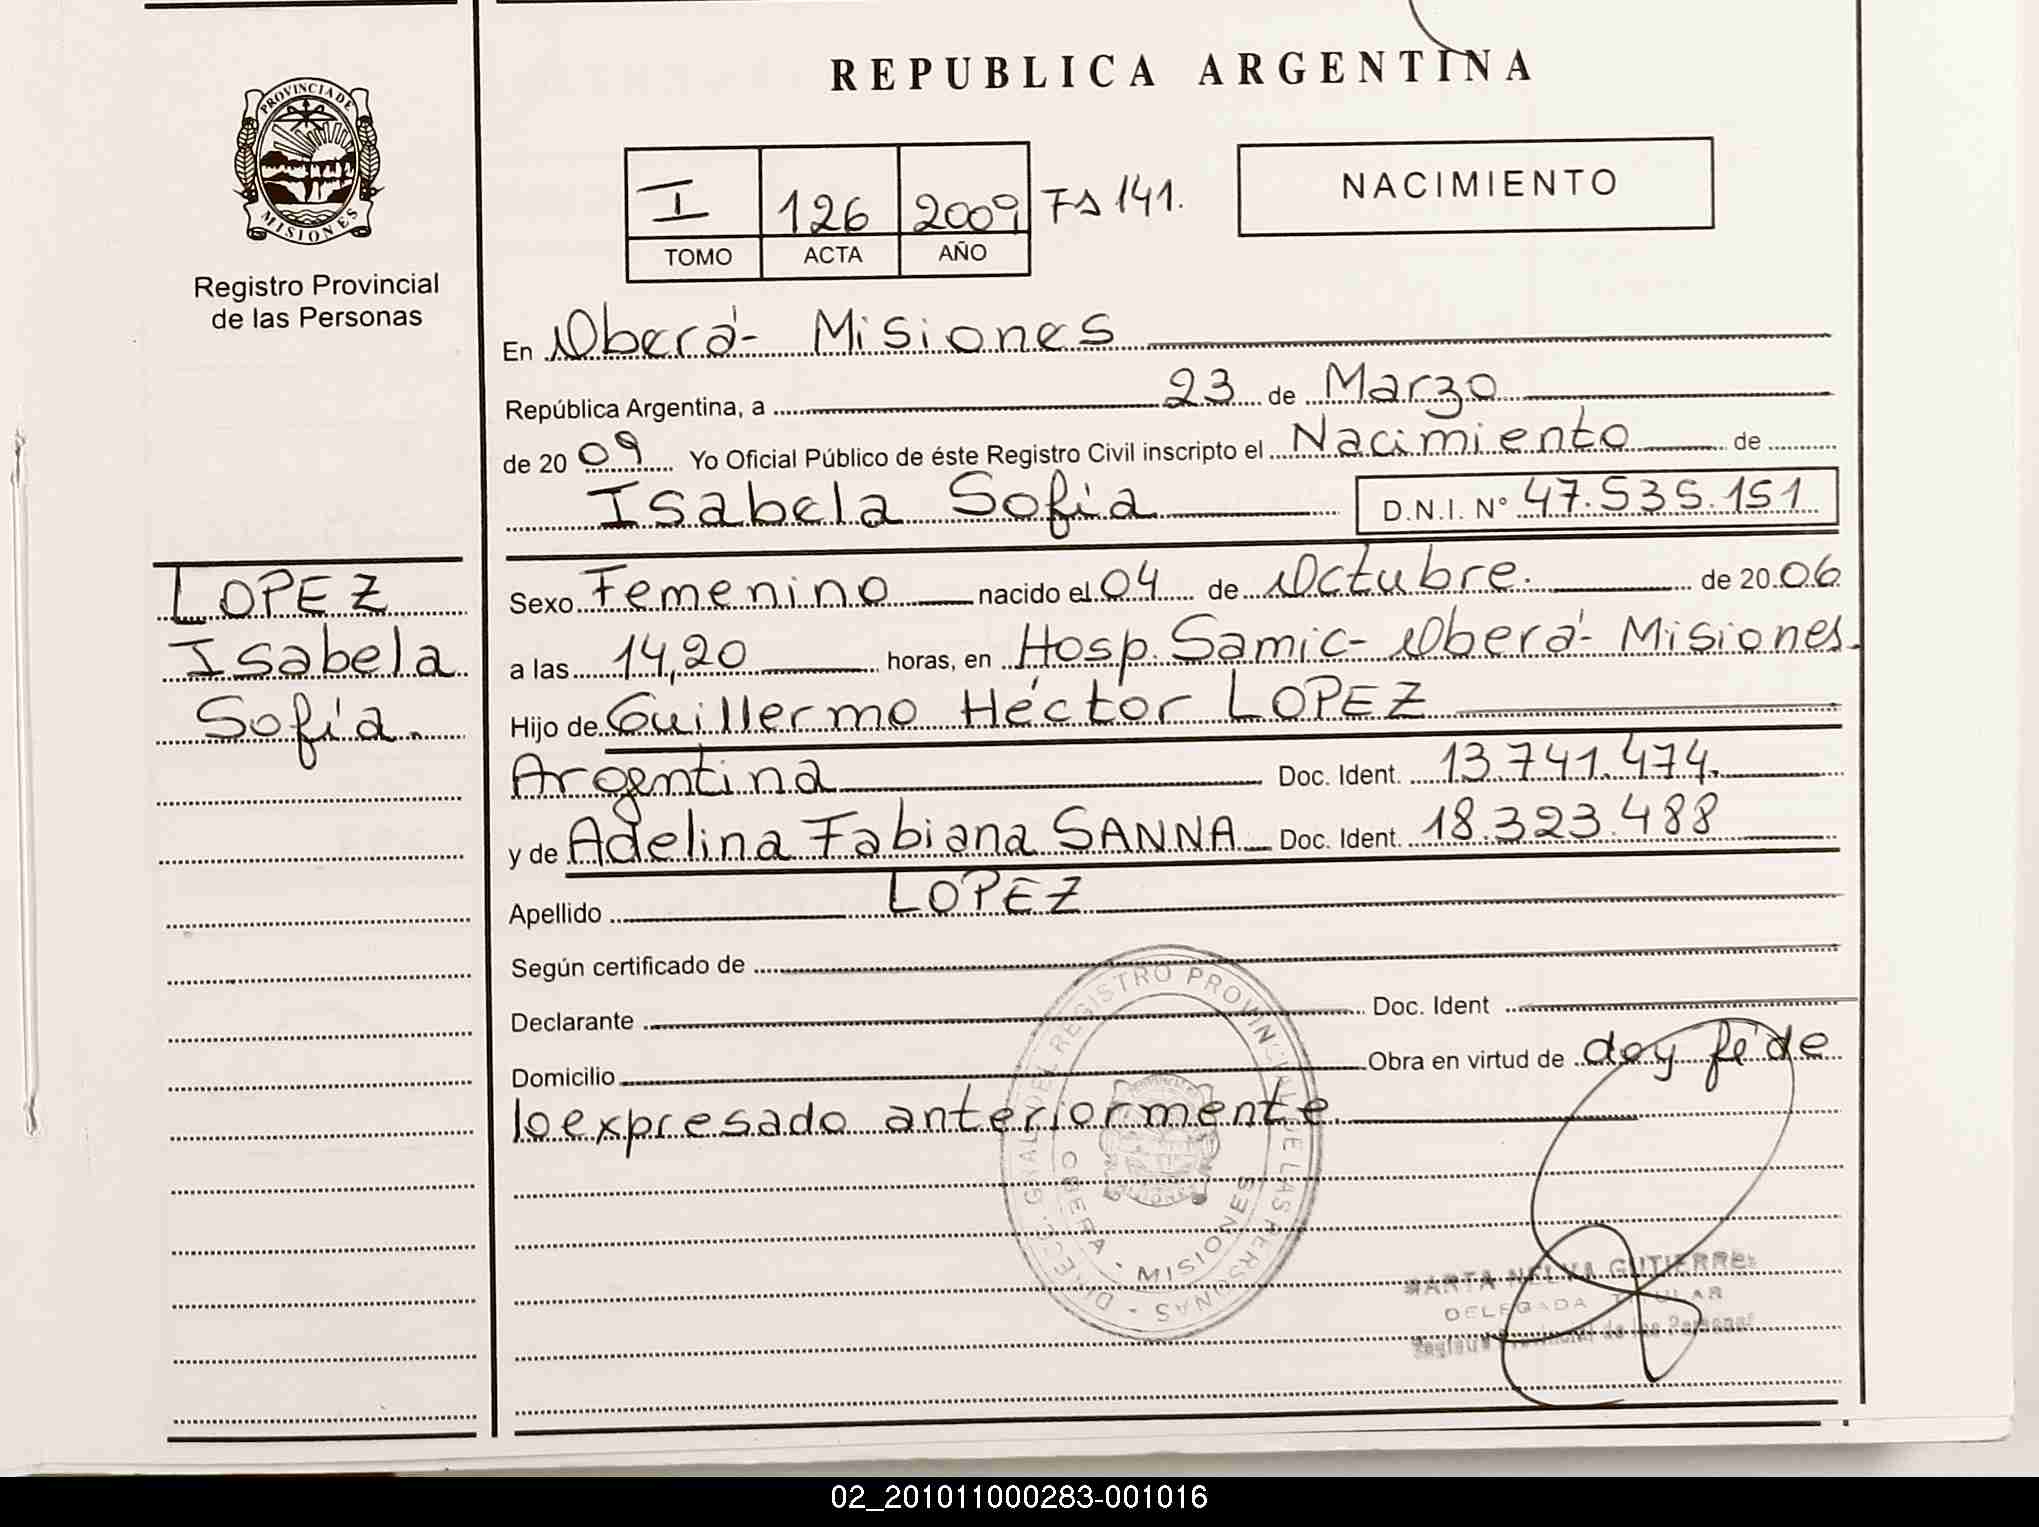 REPUBLICA ARGENTINA
PROVINCIA DE
MISIONES
Registro Provincial
de las Personas
I 126 2009 Fs 141.
TOMO ACTA AÑO
NACIMIENTO
En Oberá- Misiones
República Argentina, a 23 de Marzo
de 2009 Yo Oficial Público de éste Registro Civil inscripto el Nacimiento de
Isabela Sofía D.N.I. N° 47.535.151
LOPEZ
Isabela
Sofía.
Sexo Femenino nacido el 04 de Octubre. de 2006
a las 14,20 horas, en Hosp. Samic- Oberá- Misiones.
Hijo de Guillermo Héctor LOPEZ
Argentina Doc. Ident. 13.741.474.
y de Adelina Fabiana SANNA Doc. Ident. 18.323.488
Apellido LOPEZ
Según certificado de
Declarante Doc. Ident
Domicilio Obra en virtud de doy fé de
lo expresado anteriormente.
DIREC. GRAL DEL REGISTRO PROVINCIAL DE LAS PERSONAS
OBERA - MISIONES
MARTA NELVA GUTIERREZ
DELEGADA TITULAR
Registro Provincial de las Personas
02_201011000283-001016